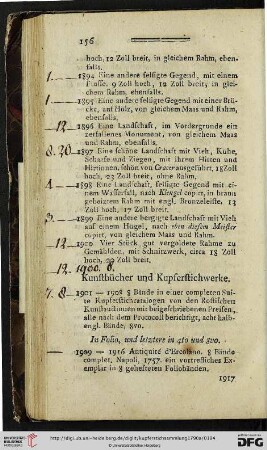 156
hoch, 12 Zoll breit, in gleichem Rahm, eben-
falls.
1 1894 Eine andere felsigte Gegend, mit einem
Flusse. 9 Zoll hoch, 12 Zoll breit, in glei-
chem Rahm, ebenfalls.
1 1895 Eine andere felsigte Gegend mit einer Brü-
cke, auf Holz, von gleichem Maas und Rahm,
ebenfalls,
12 1896 Eine Landschaft, im Vordergrunde ein
zerfallenes Monument, von gleichem Maas
und Rahm, ebenfalls.
8. 20 1897 Eine schöne Landschaft mit Vieh, Kühe,
Schaafe und Ziegen, mit ihrem Hirten und
Hirtinnen, schön von ausgeführt, 18 Zoll
hoch, 23 Zoll breit, ohne Rahm.
1898 Eine Landschaft, felsigte Gegend mit ei-
nem Wasserfall, nach Klengel copirt, in braun
gebeiztem Rahm mit engl. Bronzeleiste, 13
Zoll hoch, 17 Zoll breit.
1899 Eine andere bergigte Landschaft mit Vieh
auf einem Hügel, nach eben diesem Meister
copirt, von gleichem Maas und Rahm.
12 1900 Vier Stück gut vergoldete Rahme zu
Gemählden, mit Schnitzwerk, circa 18 Zoll
hoch, Zoll breit.
12. 1900. b.
Kunstbücher und Kupferstichwerke.
7. 8 1901 — 1908 8 Bände in einer completen Sui-
te Kupferstichcatalogen von den Rostischen
Kunstauctionen mit beigeschriebenen Preisen,
alle nach dem Protocoll berichtigt, acht halb-
engl. Bände, 8vo.
In Folio, und letztere in 4to und 8vo.
1909 — 1916 Antiquité d'Ercolano. 8 Bände
complet, Napoli, 1757. ein vortrefliches Ex-
emplar in 8 gehefteten Foliobänden.
1917